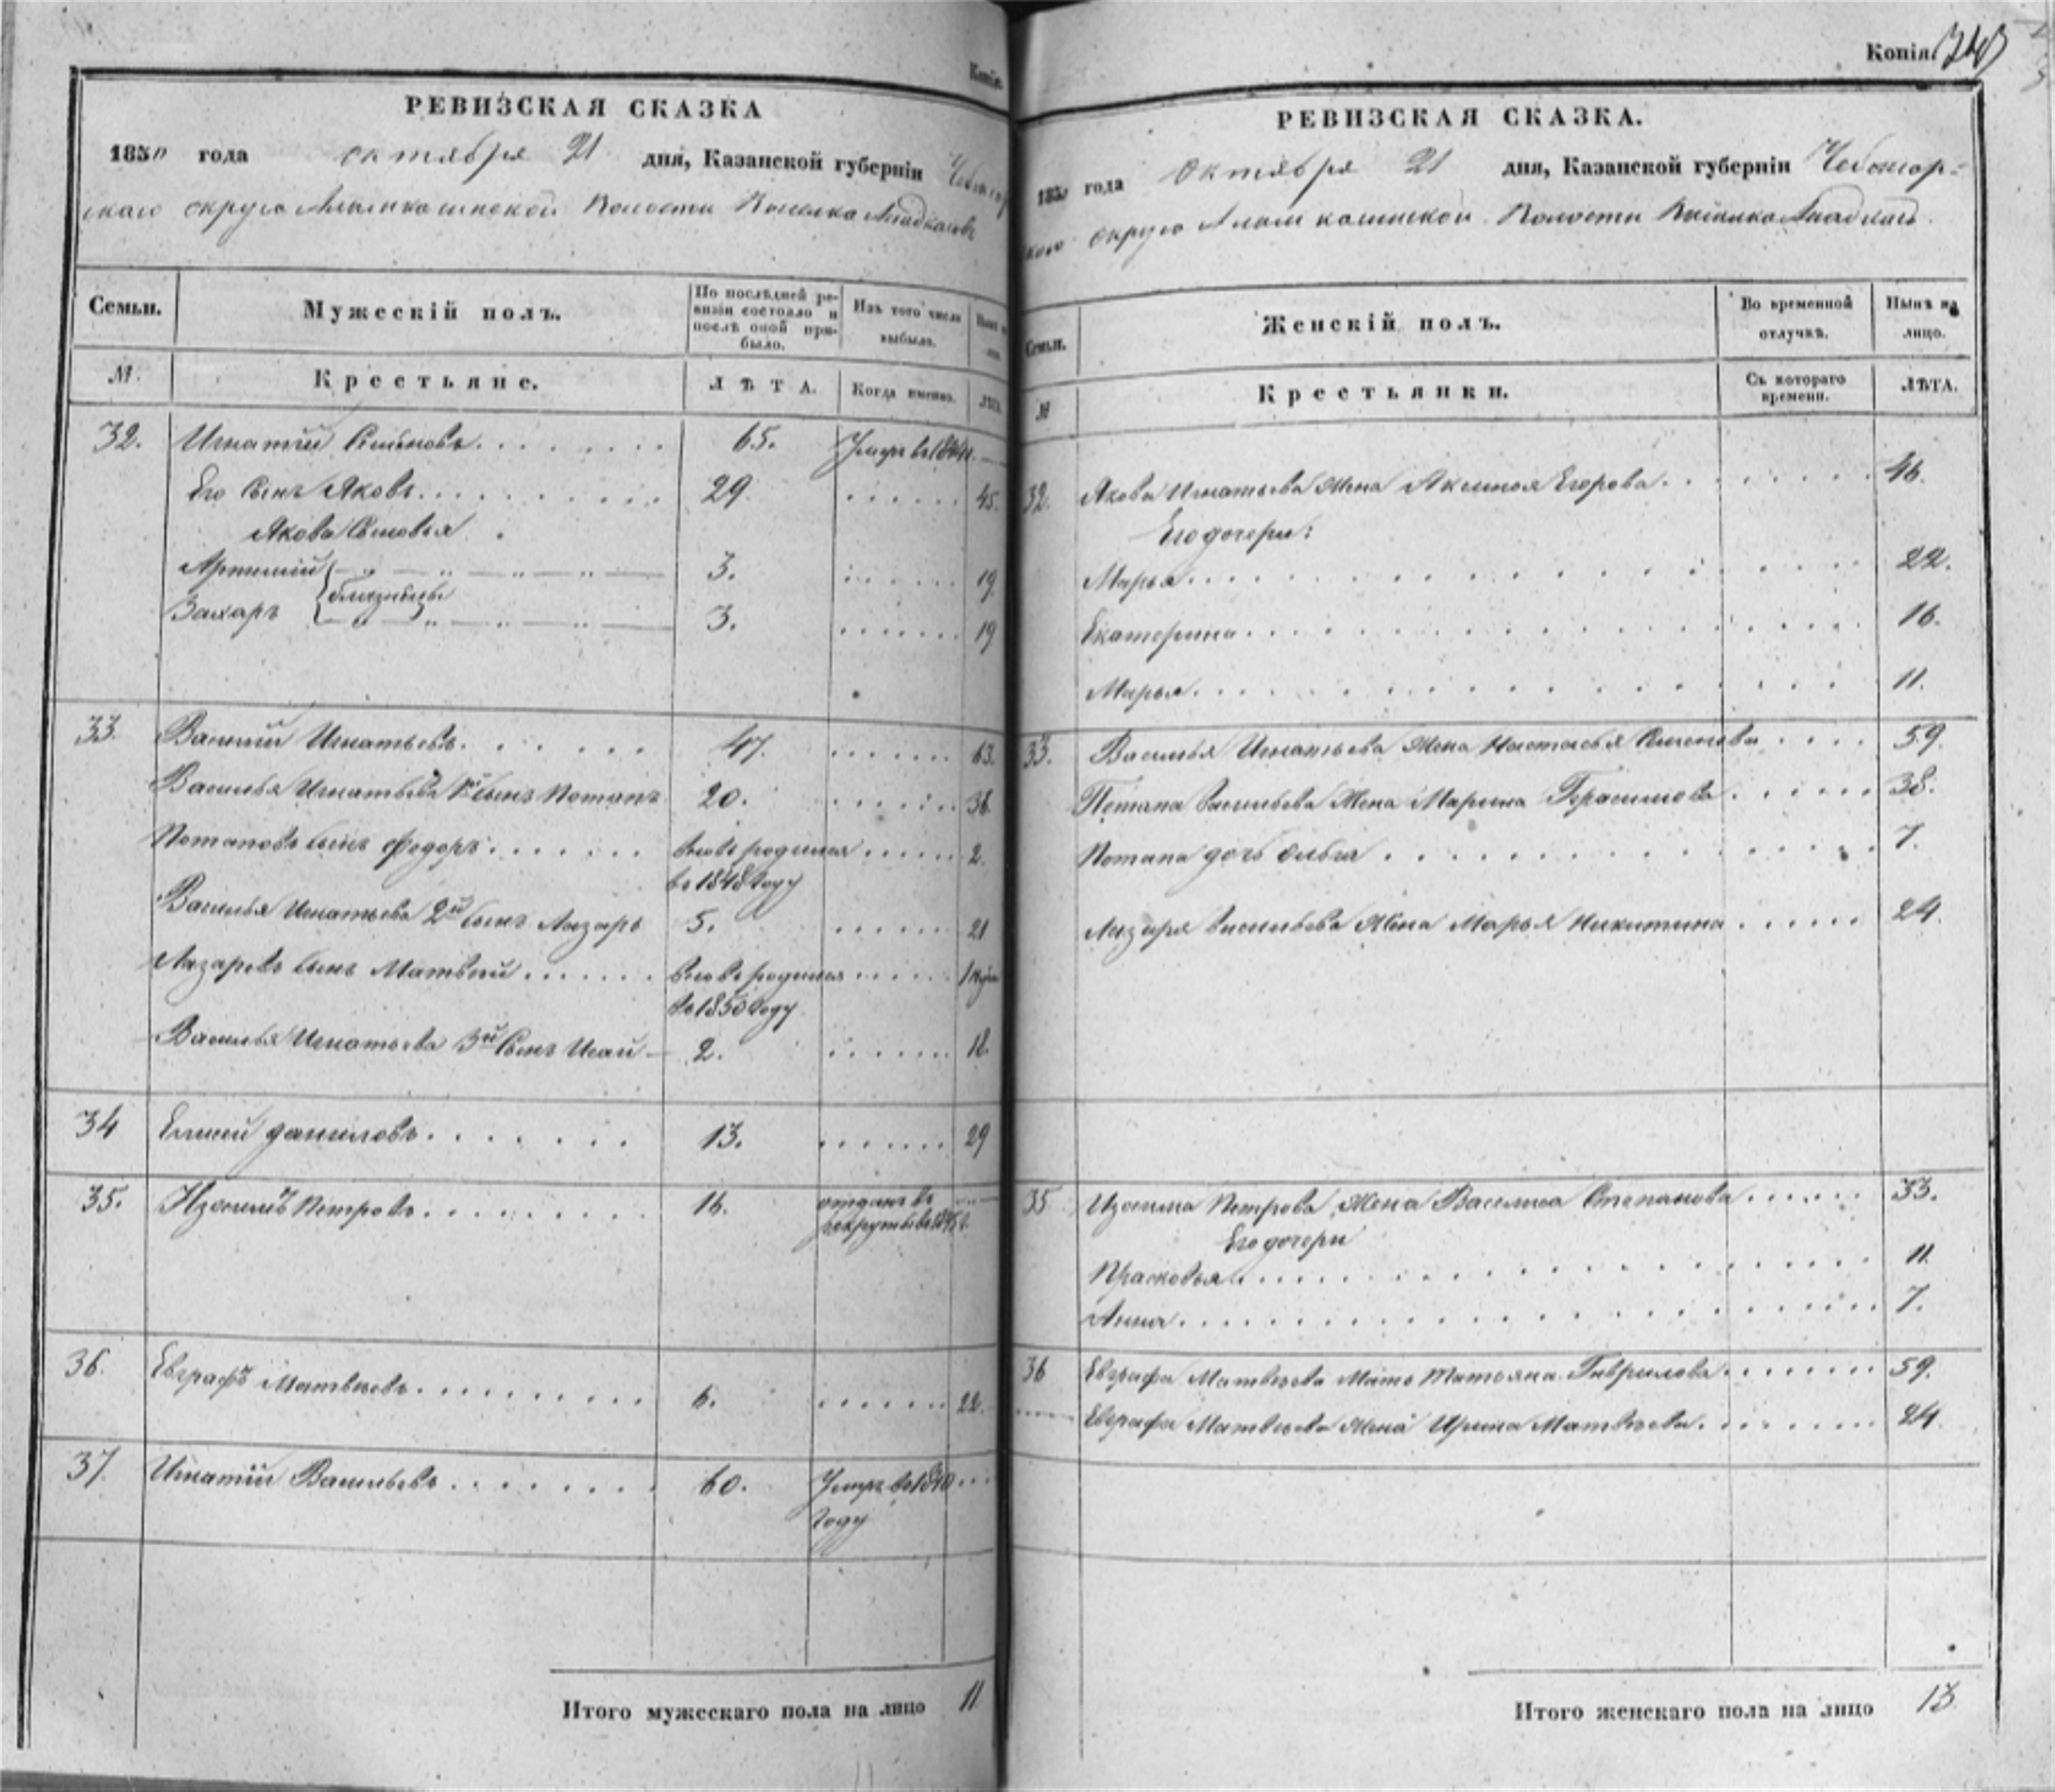 Копія
РЕВИЗСКАЯ СКАЗКА
1850 года октября 21 дня, Казанской губерніи
скаго округа Волости
Семьи.
Мужескій полъ.
По послѣдней ре-
визіи состояло и
послѣ оной при-
было.
Изъ того числа
выбыло.
№.
Крестьяне.
ЛѢТА.
Когда именно.
32. Игнатій Семеновъ 65. Умеръ въ
Его Сынъ Яковъ 29 45.
Якова Сыновья
Артемій 3. 19
близнецы
Захаръ 3. 19
33. Василій Игнатьевъ 47. 63.
Василья Игнатьева 1й Сынъ Потапъ 20. 36
Потаповъ сынъ Федоръ вновь родился 2.
въ 1848 году
Василья Игнатьева 2й сынъ Лазарь 5. 21
Лазаревъ сынъ Матвей вновь родился
въ 1850 году
Василья Игнатьева 3й Сынъ Исай 2. 18.
34 Елисей Даниловъ 13. 29
35. Петровъ 16. отданъ въ
рекруты въ
36. Евграфъ Матвеевъ 6. 22.
37. Игнатій Васильевъ 60. Умеръ въ 1840
году
Итого мужескаго пола на лицо 11
Копія
РЕВИЗСКАЯ СКАЗКА.
1850 года Октября 21 дня, Казанской губерніи Чебоксар-
скаго округа Волости
Семьи.
Женскій полъ.
Во временной
отлучкѣ.
Нынѣ на
лицо.
№
Крестьянки.
Съ котораго
времени.
ЛѢТА.
32. Якова Игнатьева Жена Аксинья Егорова 46.
Его дочери:
Марья 22.
Екатерина 16.
Марья 11.
33. Василья Игнатьева Жена Настасья Семенова 59.
Потапа Васильева Жена Марина Герасимова 38.
Потапа дочь Ольга 7.
Лазаря Васильева Жена Марья Никитина 24.
35 Изосима Петрова Жена Василиса Степанова 33.
Его дочери
Прасковья 11.
Анна 7.
36 Евграфа Матвеева Мать Татьяна Гаврилова 59.
Евграфа Матвеева Жена Ирина Матвеева 24.
Итого женскаго пола на лицо 13.